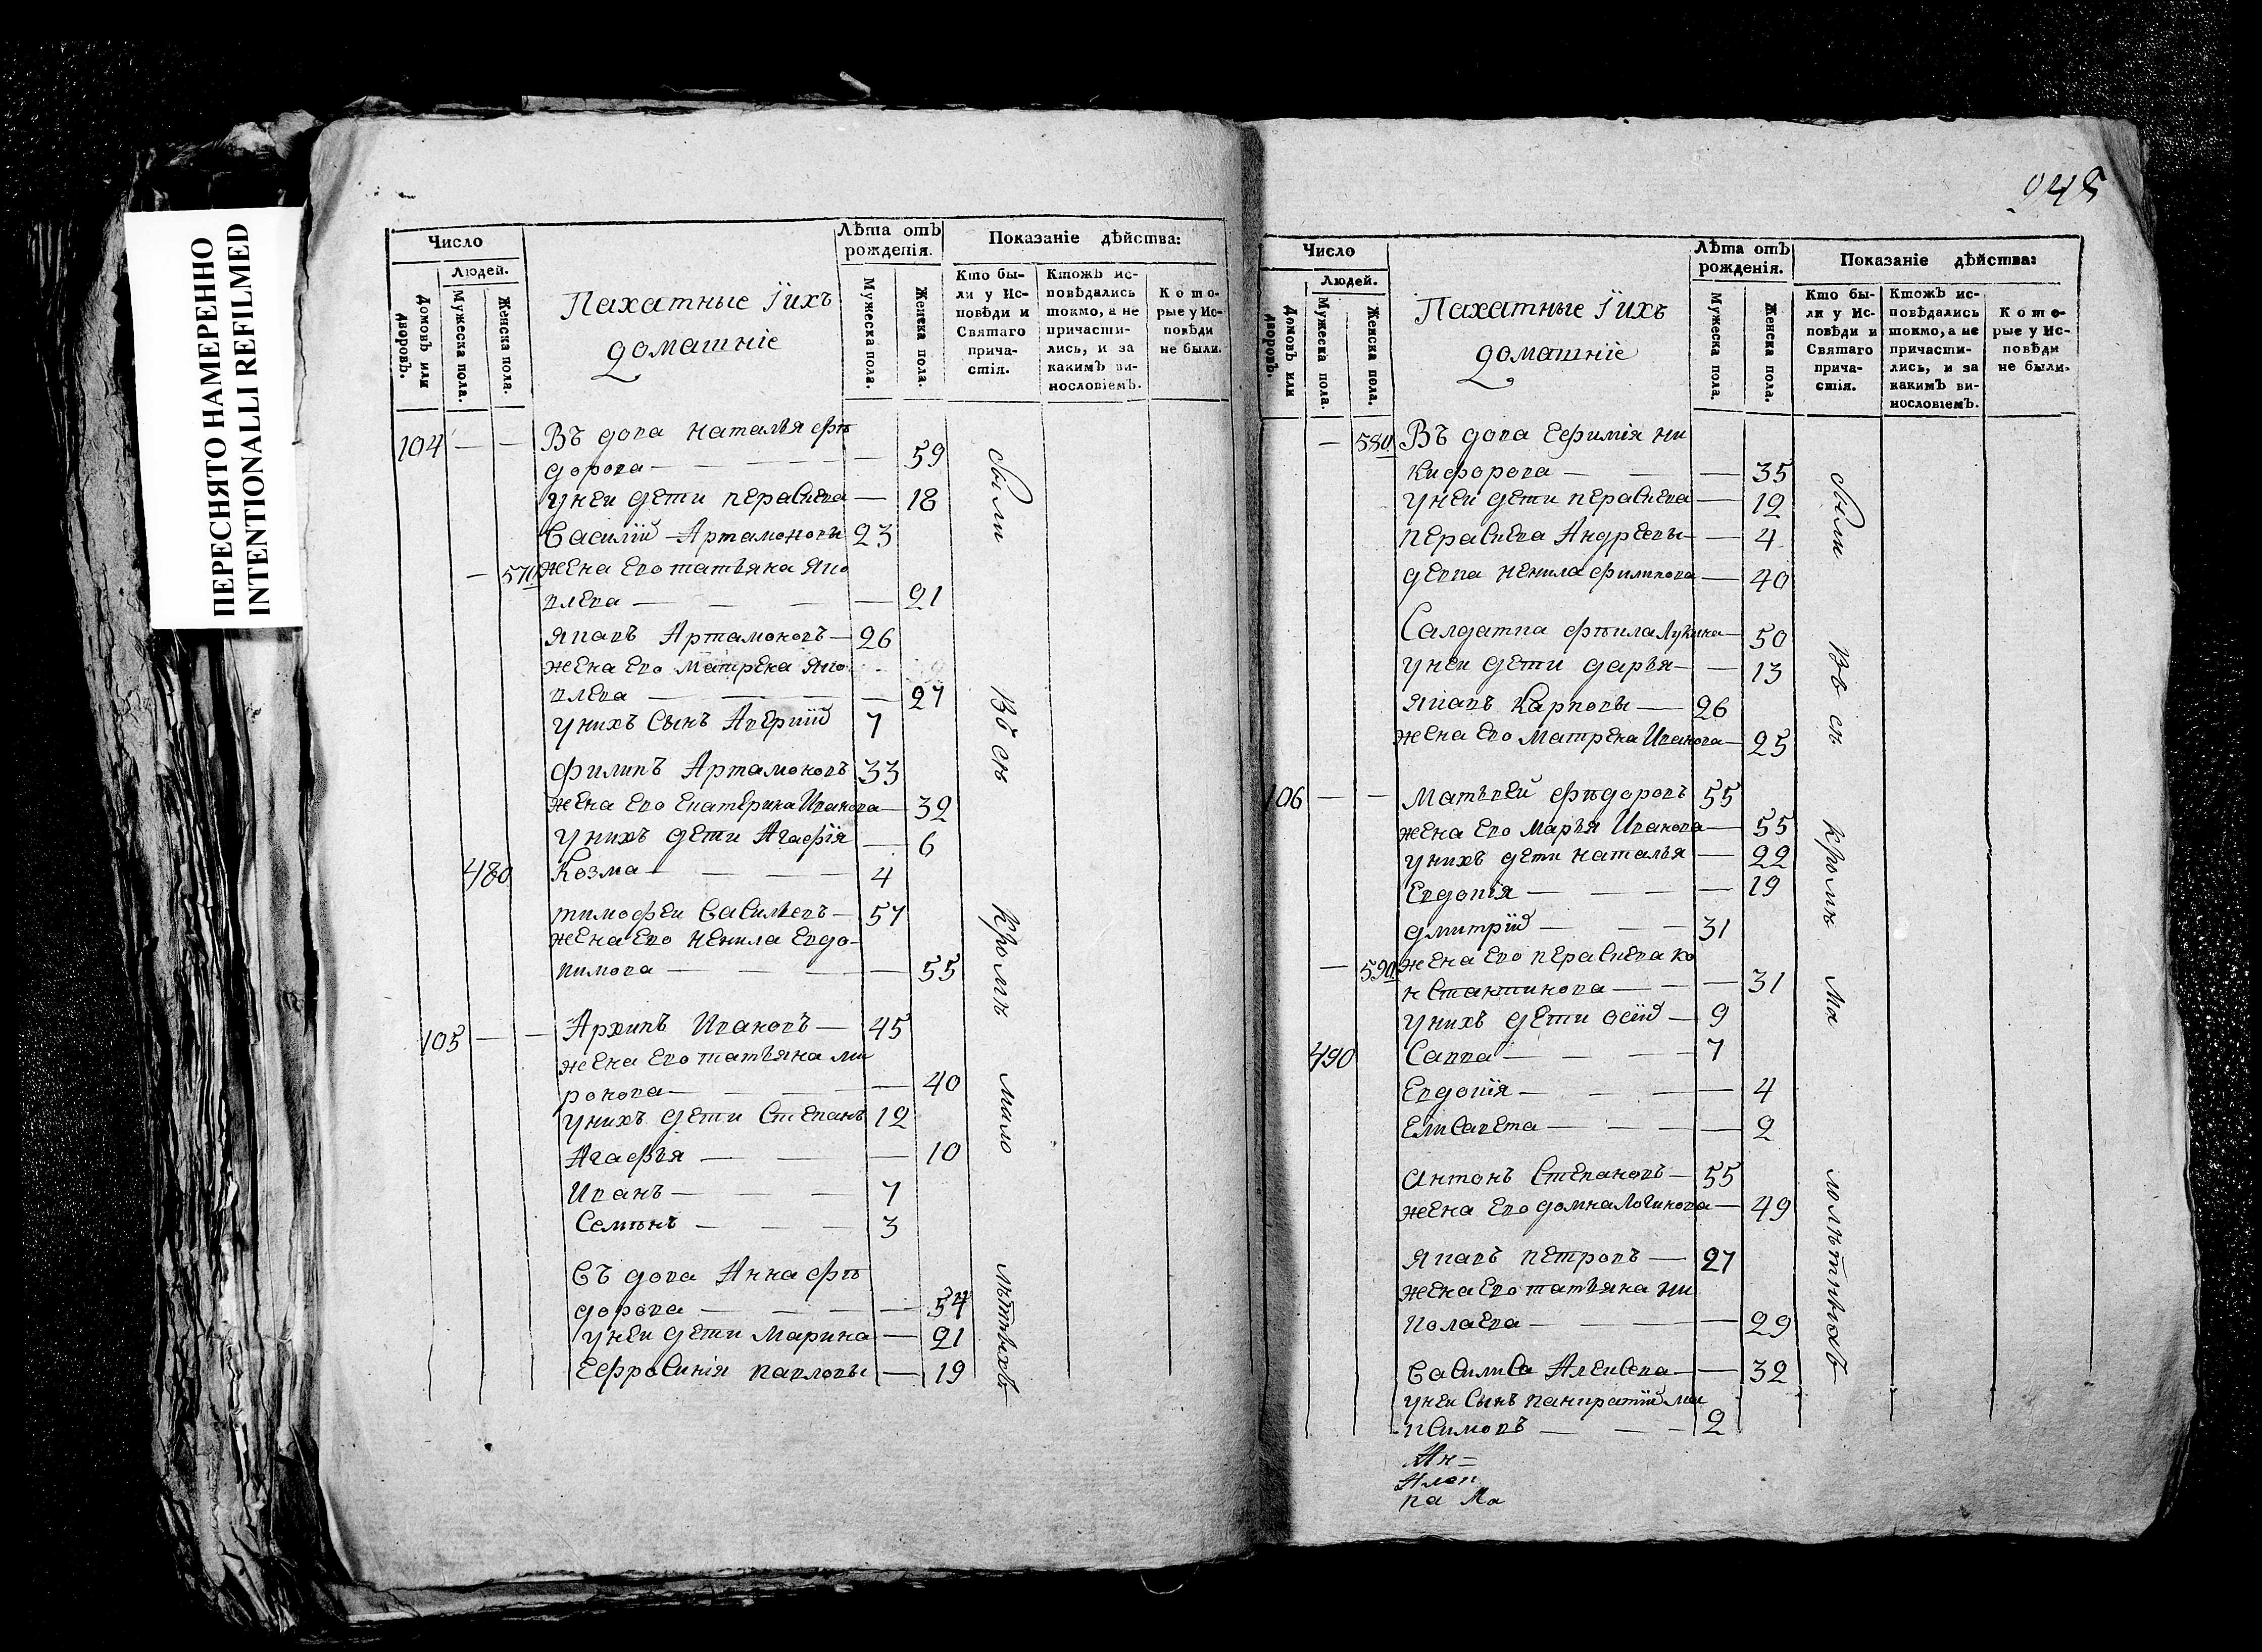 ПЕРЕСНЯТО НАМЕРЕННО
INTENTIONALLI REFILMED
Число
Людей.
Домовъ или дворовъ.
Мужеска пола.
Женска пола.
Пахатные Їихъ
домашніе
Лѣта отъ рожденія.
Мужеска пола.
Женска пола.
Показаніе дѣйства:
Кто бы-
ли у Ис-
повѣди и
Святаго
прича-
стія.
Ктожъ ис-
повѣдались
токмо, а не
причасти-
лись, и за
какимъ ви-
нословіемъ.
Кото-
рые у Ис-
повѣди
не были.
104 — — Въ дова наталья фѣ
дорова — — — — 59
унеи дети перасиева — 18
Василїй Артамоновы 23
— 570 жена ево татьяна яко
влева — — — — 21
яковъ Артамоновъ — 26
жена ево матрена яко
влева — — — — 27
унихъ сынъ Аверкїй 7
филипъ Артамоновъ 33
жена ево екатерина Иванова — 32
унихъ дети Агафїя — 6
480 Козма — — — 4
тимофеи Васильевъ — 57
жена ево ненила евдо-
кимова — — — — 55
105 — — Архипъ Ивановъ — 45
жена ево татьяна ми
ронова — — — 40
унихъ дети Степанъ 12
Агафья — — — 10
Иванъ — — — 7
Семѣнъ — — — 3
Въ дова Анна фѣ
дорова — — — — 54
унеи дети Марина — 21
Ефросинїя павловы — 19
были
Всѣ
кромѣ
мало
лѣтныхъ
945
Число
Людей.
Домовъ или дворовъ.
Мужеска пола.
Женска пола.
Пахатные Їихъ
домашніе
Лѣта отъ
рожденія.
Мужеска пола.
Женска пола.
Показаніе дѣйства:
Кто бы-
ли у Ис-
повѣди и
Святаго
прича-
стія.
Ктожъ ис-
повѣдались
токмо, а не
причасти-
лись, и за
какимъ ви-
нословіемъ.
Кото-
рые у Ис-
повѣди
не были.
— 580 Въ дова Ефимїя ни
кифорова — — — 35
унеи дети перасиева — 12
перасиева Андреевы — — 4
девка ненила филипова — 40
Салдатка фѣкла Лукина — 50
унеи дети дарья — — 13
яковъ Карповы — 26
жена ево матрена Иванова — 25
106 — — Матвей фѣдоровъ 55
жена ево марья Иванова — 55
унихъ дети наталья — 22
Евдокїя — — — — 19
дмитрїй — — — 31
— 590 жена ево перасиева ко
нстантинова — — — 31
унихъ дети осїй — 9
490 Савва — — — 7
Евдокїя — — — — 4
Елисавета — — — — 2
Антонъ Степановъ — 55
жена ево домна логинова — 49
яковъ петровъ — 27
жена ево татьяна ни
колаева — — — 29
Василиса Алексева — — 32
унеи сынъ панкратїй ма
ксимовъ — — — 2
были
Всѣ
кромѣ
ма
лолѣтныхъ